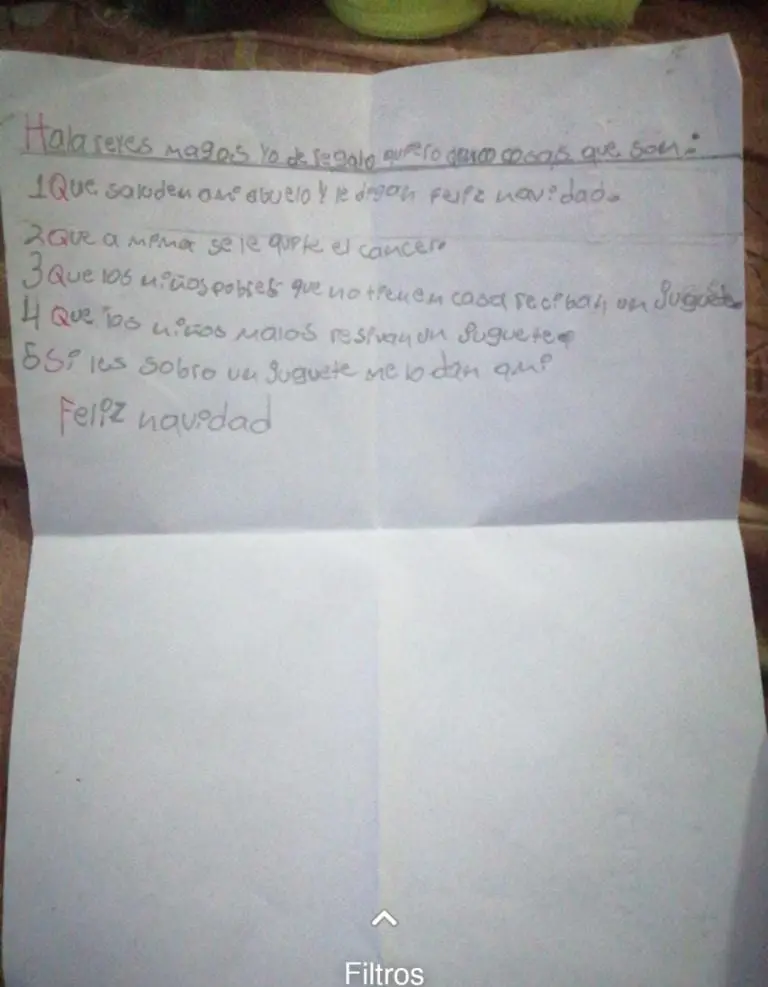 Hola reyes magos Yo de regalo quiero cosas que son:
1 Que saluden a mi abuelo y le digan feliz navidad.
2 Que a mema se le quite el cancer.
3 Que los niños pobres que no tienen casa reciban un juguete
4 Que los niños malos resivan un juguete
5 Si les sobro un juguete me lo dan ami
Feliz navidad
Filtros